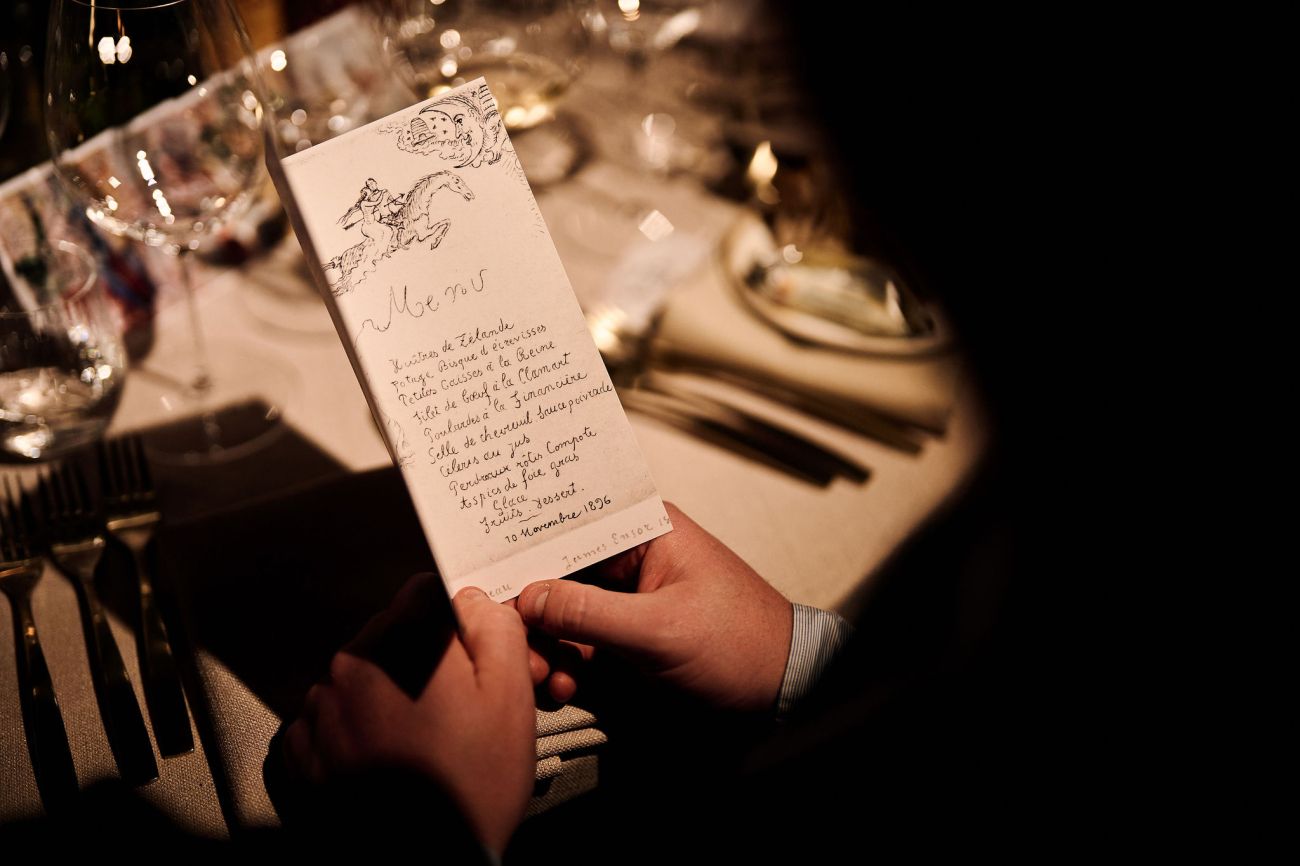 Menu
Huîtres de Zélande
Potage Bisque d'écrevisses
Petites Caisses à la Reine
Filet de bœuf à la Clamart
Poulardes à la Financière
Selle de chevreuil Sauce poivrade
Céleris au jus
Perdreaux rôtis Compote
Aspics de foie gras
Glace
Fruits. Dessert.
10 Novembre 1896
James Ensor 18